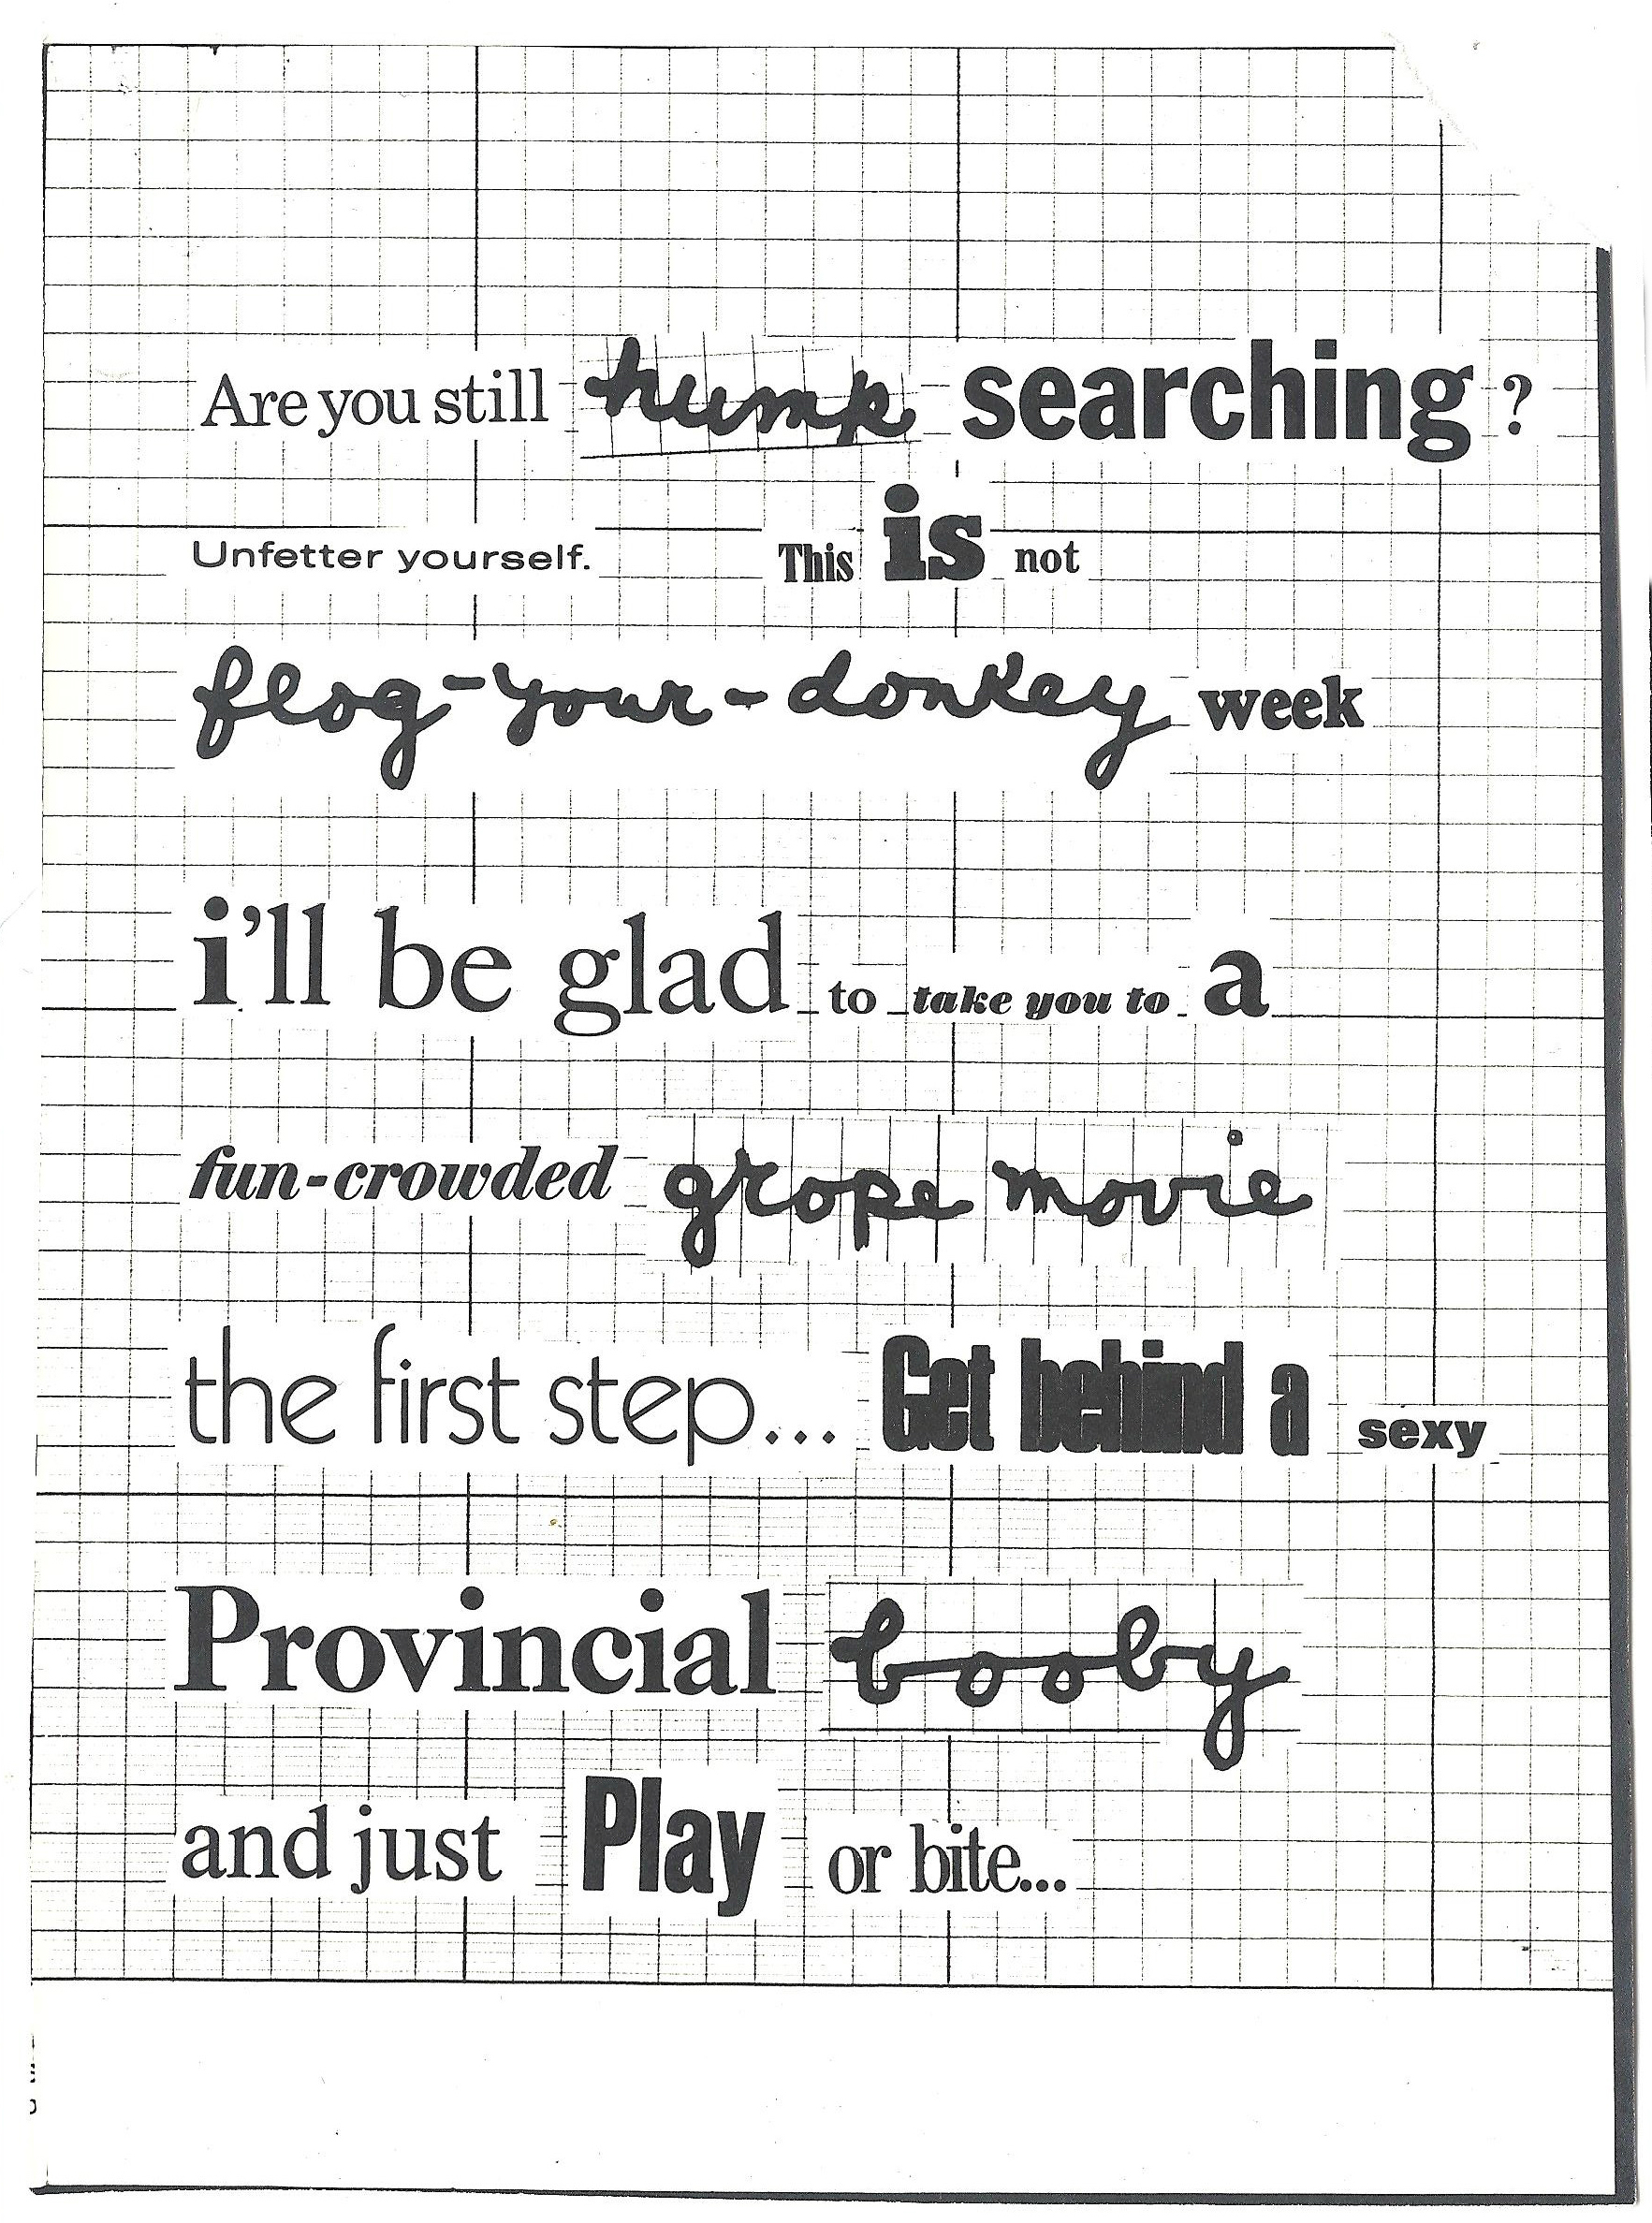 Are you still hump searching ?
Unfetter yourself. This is not
flog-your-donkey week
i'll be glad to take you to a
fun-crowded grope movie
the first step... Get behind a sexy
Provincial booby
and just Play or bite...